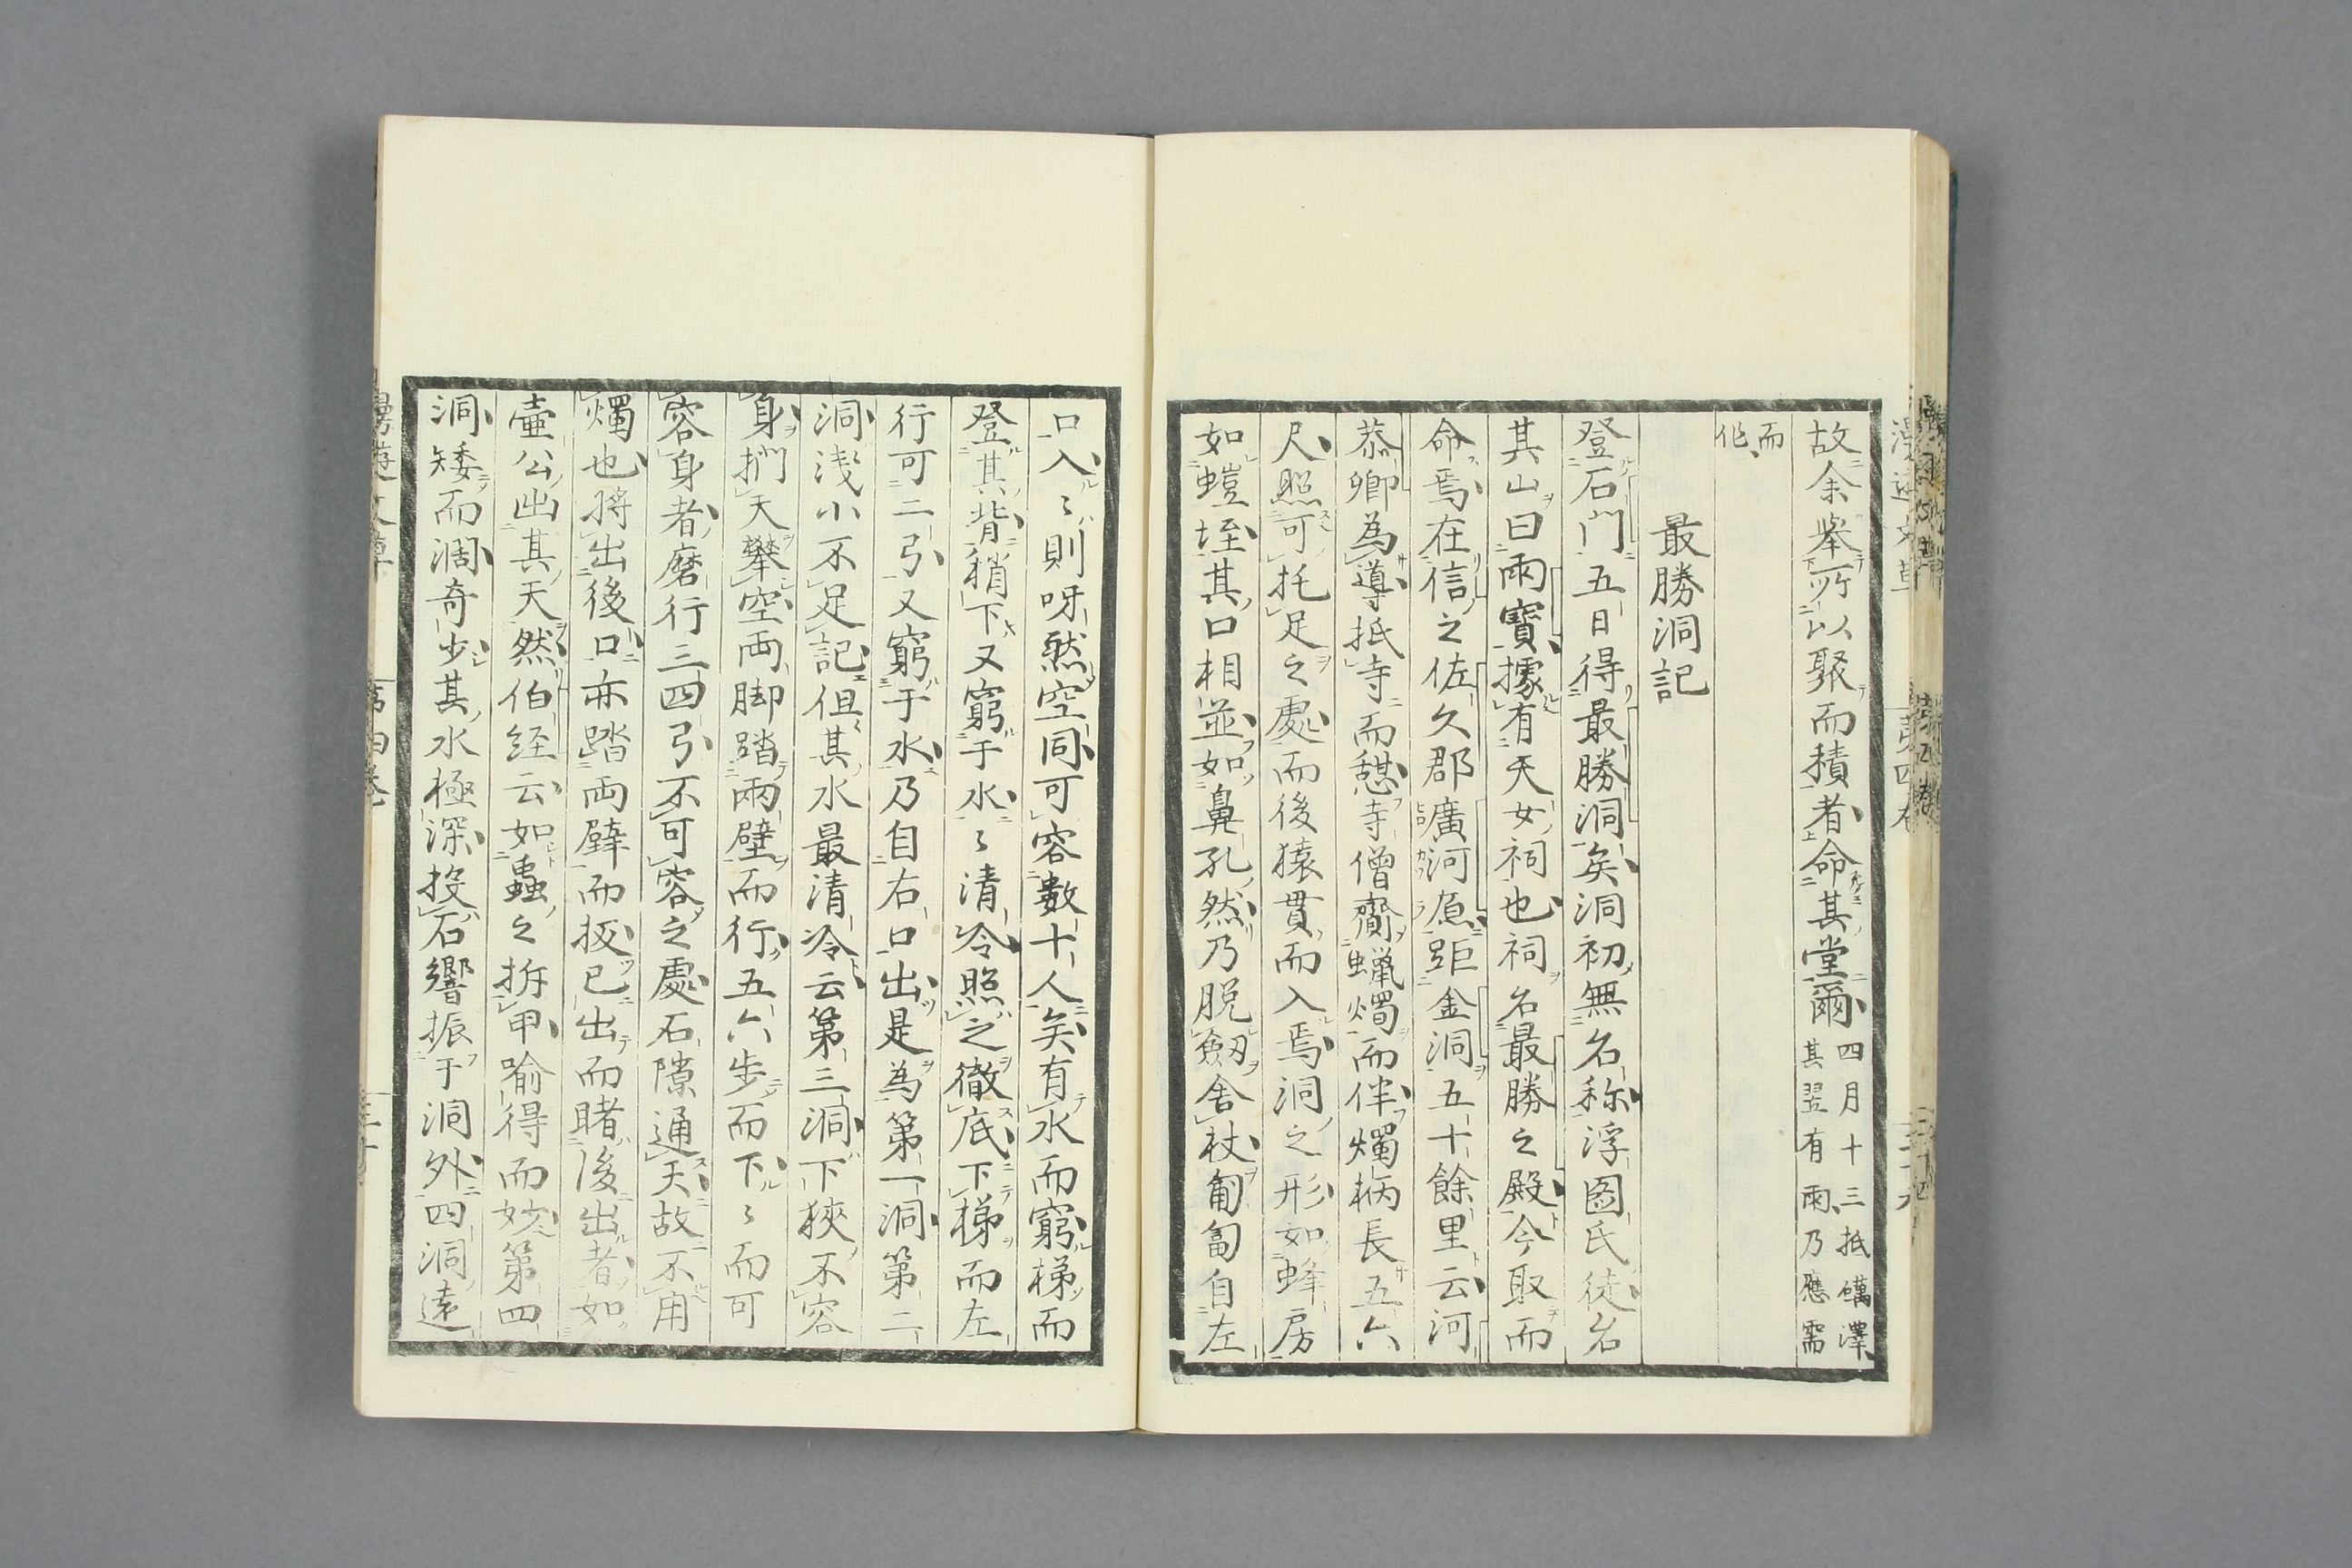 故余挙所以聚而積者命其堂爾四月十三抵礒澤其翌有雨乃應需
而作
最勝洞記
登石門五日得最勝洞矣洞初無名称浮圖氏徒名
其山曰兩寳據有天女祠也祠名最勝之殿今取而
命焉在信之佐久郡廣河原距金洞五十餘里云河
恭卿為導抵寺而憇寺僧齎蠟燭而伴燭柄長五六
尺照可托足之處而後猿貫而入焉洞之形如蜂房
如螘垤其口相並如鼻孔然乃脱劔舎杖匍匐自左
口入〻則呀然空洞可容數十人矣有水而窮梯而
登其背稍下又窮于水〻清冷照之徹底下梯而左
行可二弓又窮于水乃自右口出是為第一洞第二
洞浅小不足記但其水最清冷云第三洞下狹不容
身捫天攀空両脚踏兩壁而行五六步而下〻而可
容身者磨行三四弓不可容之處石隙通天故不用
燭也將出後口亦踏両壁而抜已出而睹後出者如
壷公出其天然伯経云如蟲之拆甲喻得而妙第四
洞矮而濶奇少其水極深投石響振于洞外四洞逺
漫遊文草
第四巻